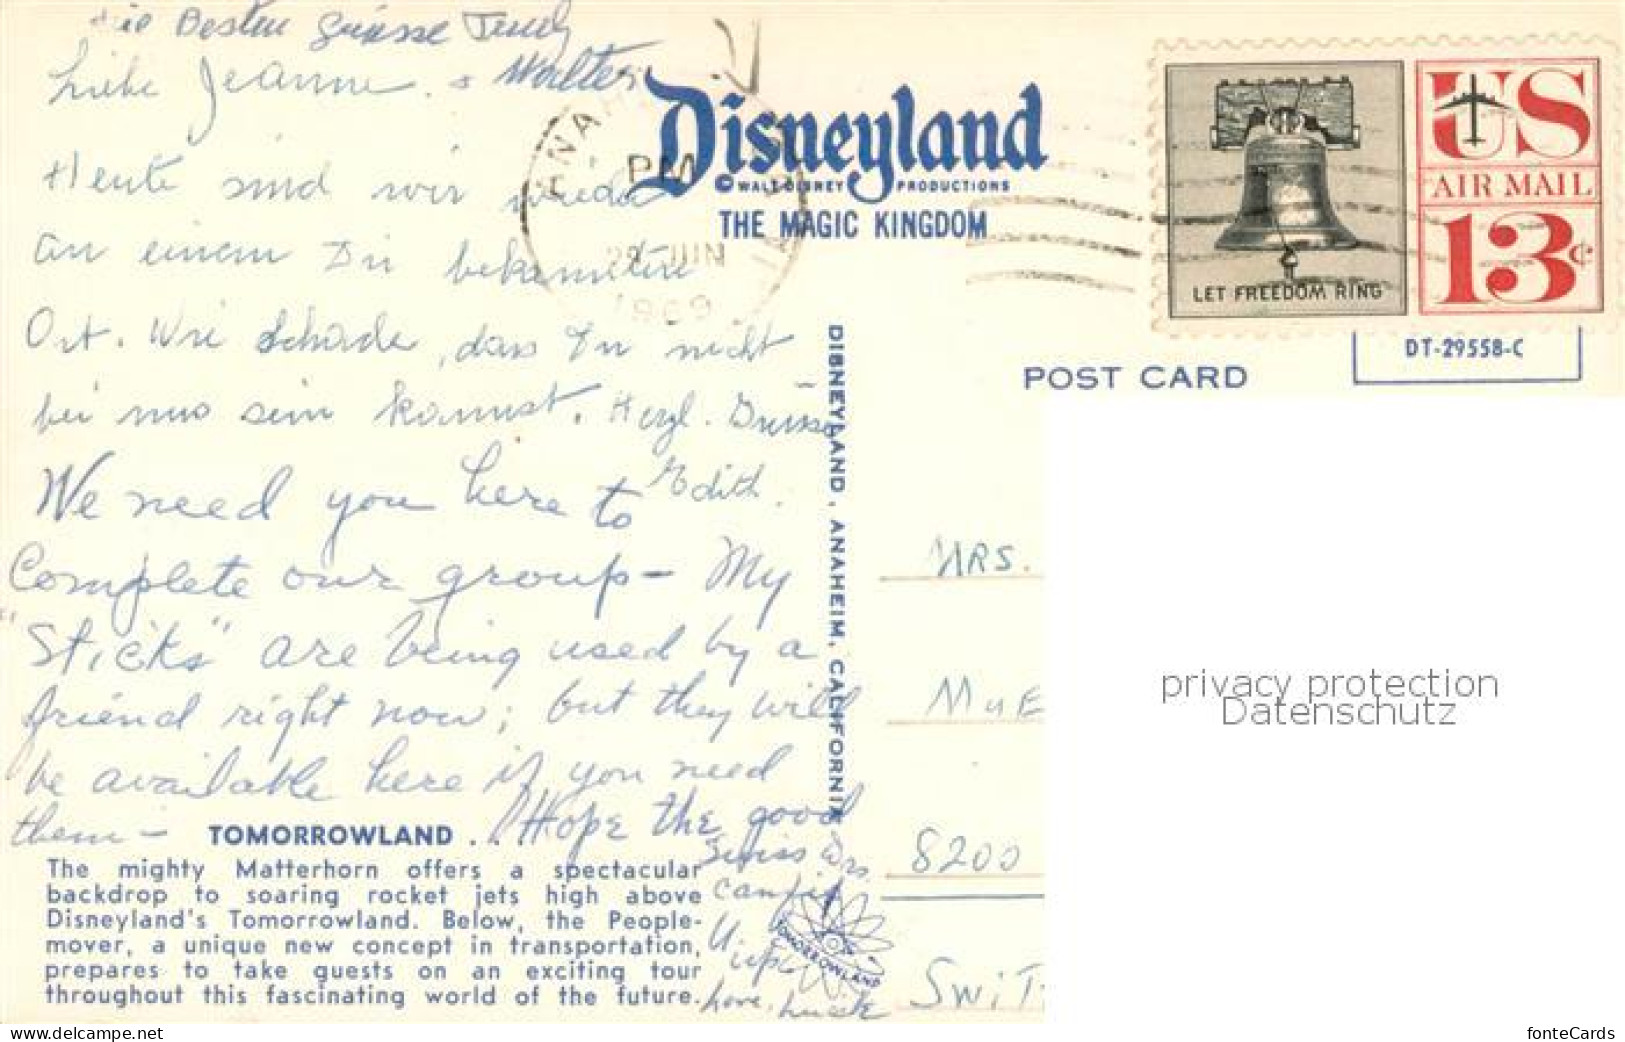 die Besten Grüsse Trudy
Liebe Jeanne & Walter
Heute sind wir wieder
an einem Dir bekannten
Ort. Wie schade, dass Du nicht
bei uns sein kannst. Herzl. Grüsse
Edith.
We need you here to
Complete our group - My
"Sticks" are being used by a
friend right now; but they will
be available here if you need
them - Hope the good
Swiss Drs.
can fix
U
up
Love,
TOMORROWLAND . . .
The mighty Matterhorn offers a spectacular
backdrop to soaring rocket jets high above
Disneyland's Tomorrowland. Below, the People-
mover, a unique new concept in transportation,
prepares to take guests on an exciting tour
throughout this fascinating world of the future.
TOMORROWLAND
Disneyland
© WALT DISNEY PRODUCTIONS
THE MAGIC KINGDOM
PM
28 JUN
1969
DISNEYLAND, ANAHEIM, CALIFORNIA
LET FREEDOM RING
US
AIR MAIL
13¢
DT-29558-C
POST CARD
MRS.
MuE
8200
SWIT
privacy protection
Datenschutz
https://www.delcampe.net
fonteCards